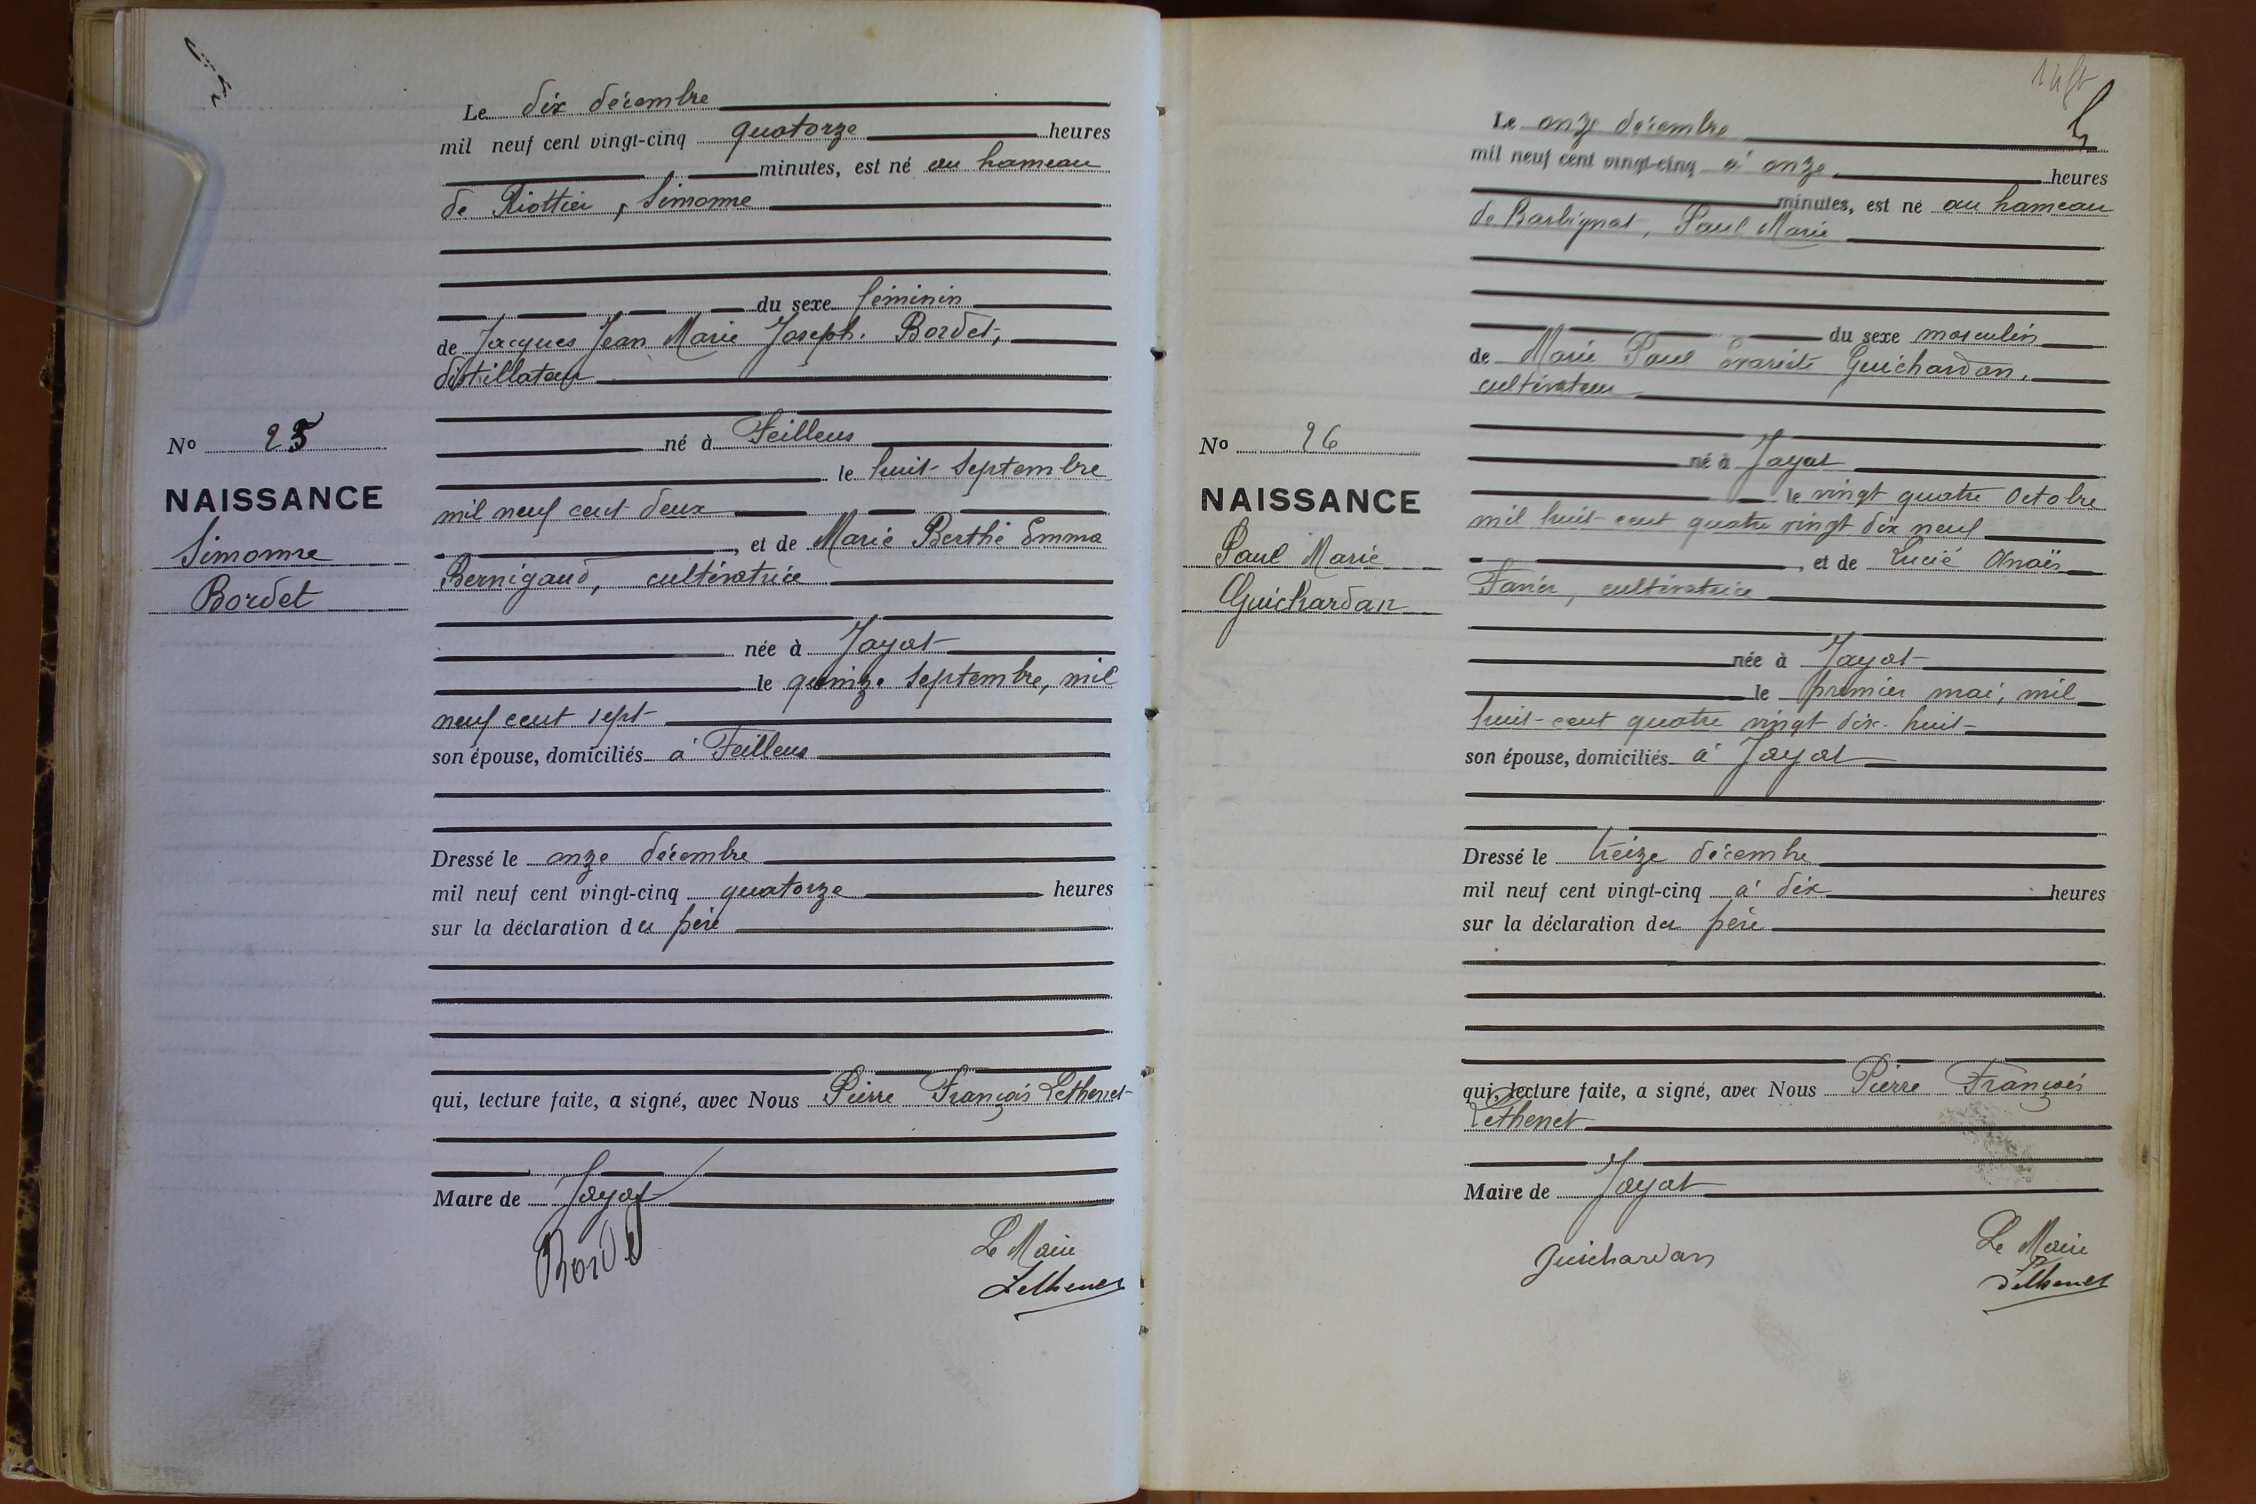 Le dix décembre
mil neuf cent vingt-cinq quatorze heures
minutes, est né au hameau
de Riottier, Simonne
du sexe féminin
de Jacques Jean Marie Joseph Bordet,
distillateur
né à Feillens
le huit Septembre
mil neuf cent deux
, et de Marie Berthe Emma
Bernigaud, cultivatrice
née à Jayat
le quinze Septembre, mil
neuf cent sept
son épouse, domiciliés à Feillens
Dressé le onze décembre
mil neuf cent vingt-cinq quatorze heures
sur la déclaration du père
qui, lecture faite, a signé, avec Nous Pierre François Lethenet
Maire de Jayat
Bordet
Le Maire
Lethenet
No 25
NAISSANCE
Simonne
Bordet
Le onze décembre
mil neuf cent vingt-cinq à onze heures
minutes, est né au hameau
de Barbignat, Paul Marie
du sexe masculin
de Marie Paul Evariste Guichardan,
cultivateur
né à Jayat
le vingt quatre Octobre
mil huit-cent quatre vingt dix neuf
, et de Lucie Anaïs
cultivatrice
née à Jayat
le premier mai, mil
huit-cent quatre vingt dix-huit
son épouse, domiciliés à Jayat
Dressé le treize décembre
mil neuf cent vingt-cinq à dix heures
sur la déclaration du père
qui, lecture faite, a signé, avec Nous Pierre François
Lethenet
Maire de Jayat
Guichardan
Le Maire
Lethenet
No 26
NAISSANCE
Paul Marie
Guichardan